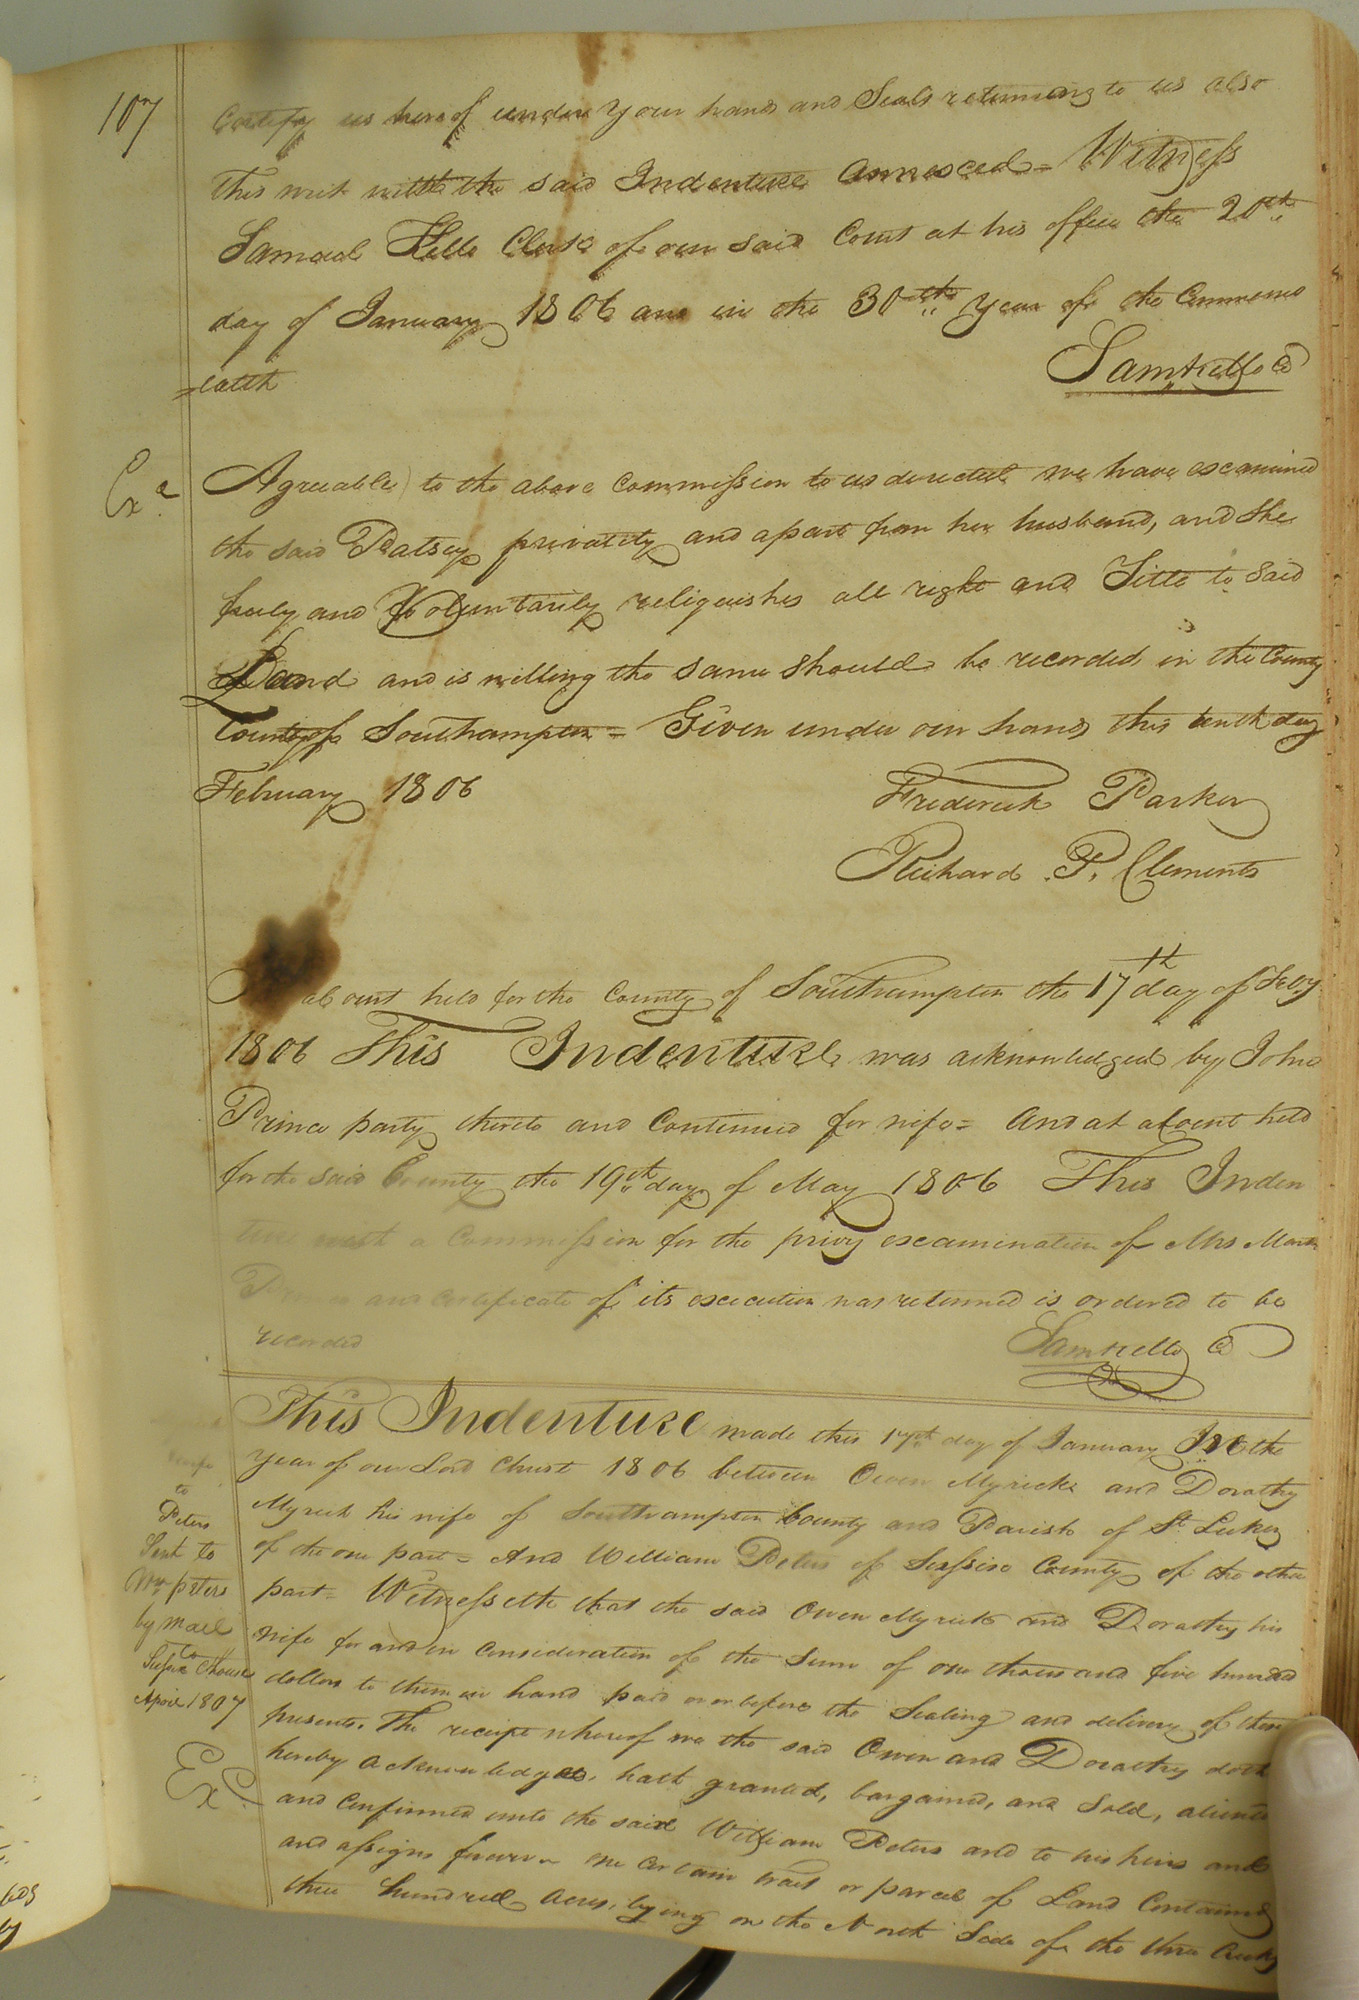 107
Certify us hereof under your hands and Seals returning to us also
this writ with the said Indenture annexed = Witness
Samuel Kello Clerk of our said Court at his office the 20th
day of January 1806 and in the 30th year of the Commonw
=ealth
Saml Kello CC
Exd
Agreeable to the above commission to us directed we have examined
the said Patsey privately and apart from her husband, and she
freely and Voluntarily reliquishes all right and Title to said
Land and is willing the same should be recorded in the County
County of Southampton = Given under our hands this tenth day
February 1806
Frederick Parker
Richard P. Clements
a Court held for the County of Southampton the 17th day of Feby
1806 This Indenture was acknowledged by John
Prince party thereto and Continued for wife = And at a Court held
for the said County the 19th day of May 1806 This Inden
ture with a Commission for the privy examination of Mrs Martha
Prince and certificate of its execution was returned is ordered to be
recorded
Saml Kello CC
This Indenture made this 17th day of January In the
year of our Lord Christ 1806 between Owen Myrick and Dorathy
Myrick his wife of Southampton County and Parish of St Lukes
of the one part = And William Peters of Sussex County of the other
part = Witnesseth that the said Owen Myrick and Dorathy his
wife for and in consideration of the Sum of one thousand five hundred
dollars to them in hand paid or or before the Sealing and delivery of these
presents. The receipt whereof we the said Owen and Dorathy doth
hereby acknowledges, hath granted, bargained, and Sold, aliened
and confirmed unto the said William Peters and to his heirs and
and assigns forever one certain tract or parcel of Land Containing
three hundred Acres, lying on the North Side of the three Creeks
wife
to
Peters
Sent to
Wm peters
by mail
to
Sussex CHouse
April 1807
Exd